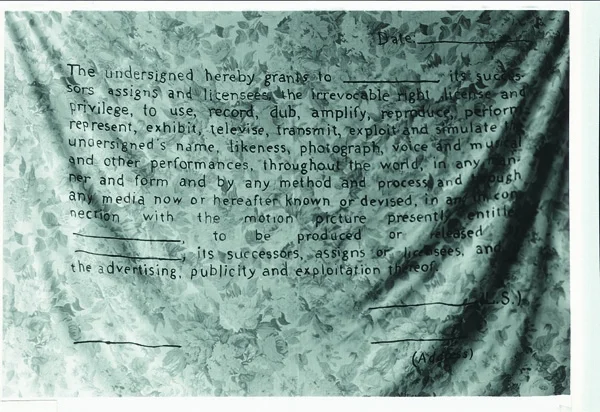 Date
The undersigned hereby grants to its succes-
sors assigns and licensees, the irrevocable right, license and
privilege, to use, record, dub, amplify, reproduce, perform
represent, exhibit, televise, transmit, exploit and simulate the
undersigned's name, likeness, photograph, voice and musical
and other performances, throughout the world, in any man-
ner and form and by any method and process and through
any media now or hereafter known or devised, in any in con-
nection with the motion picture presently entitled
, to be produced or released
, its successors, assigns or licensees, and
the advertising, publicity and exploitation thereof.
(L.S.)
(Address)